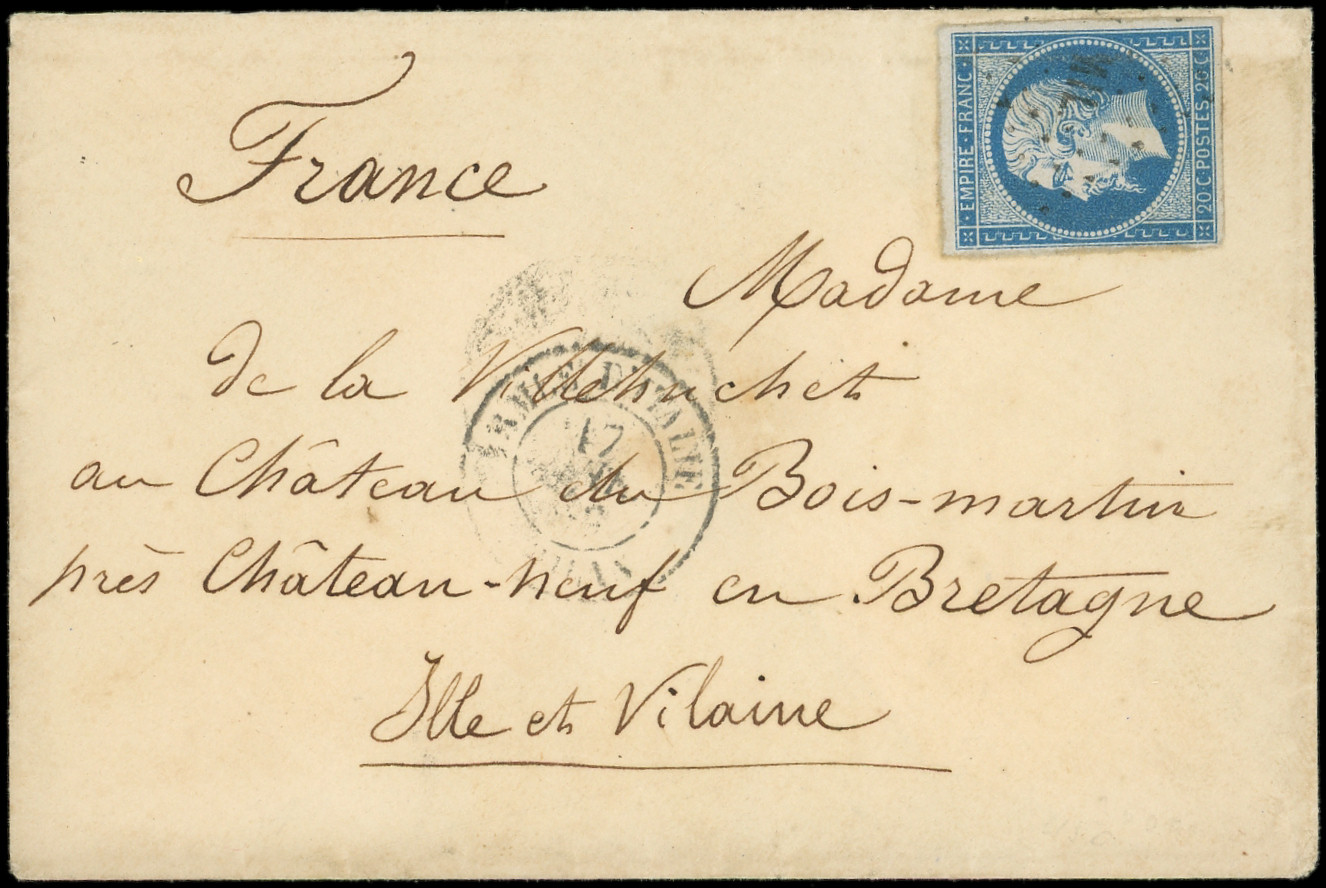 EMPIRE · FRANC ·
20 C · POSTES 20 C
France
Madame
de la Villehuchet
au Château du Bois-martin
près Château-neuf en Bretagne
Ille et Vilaine
ARMÉE D'ITALIE
17